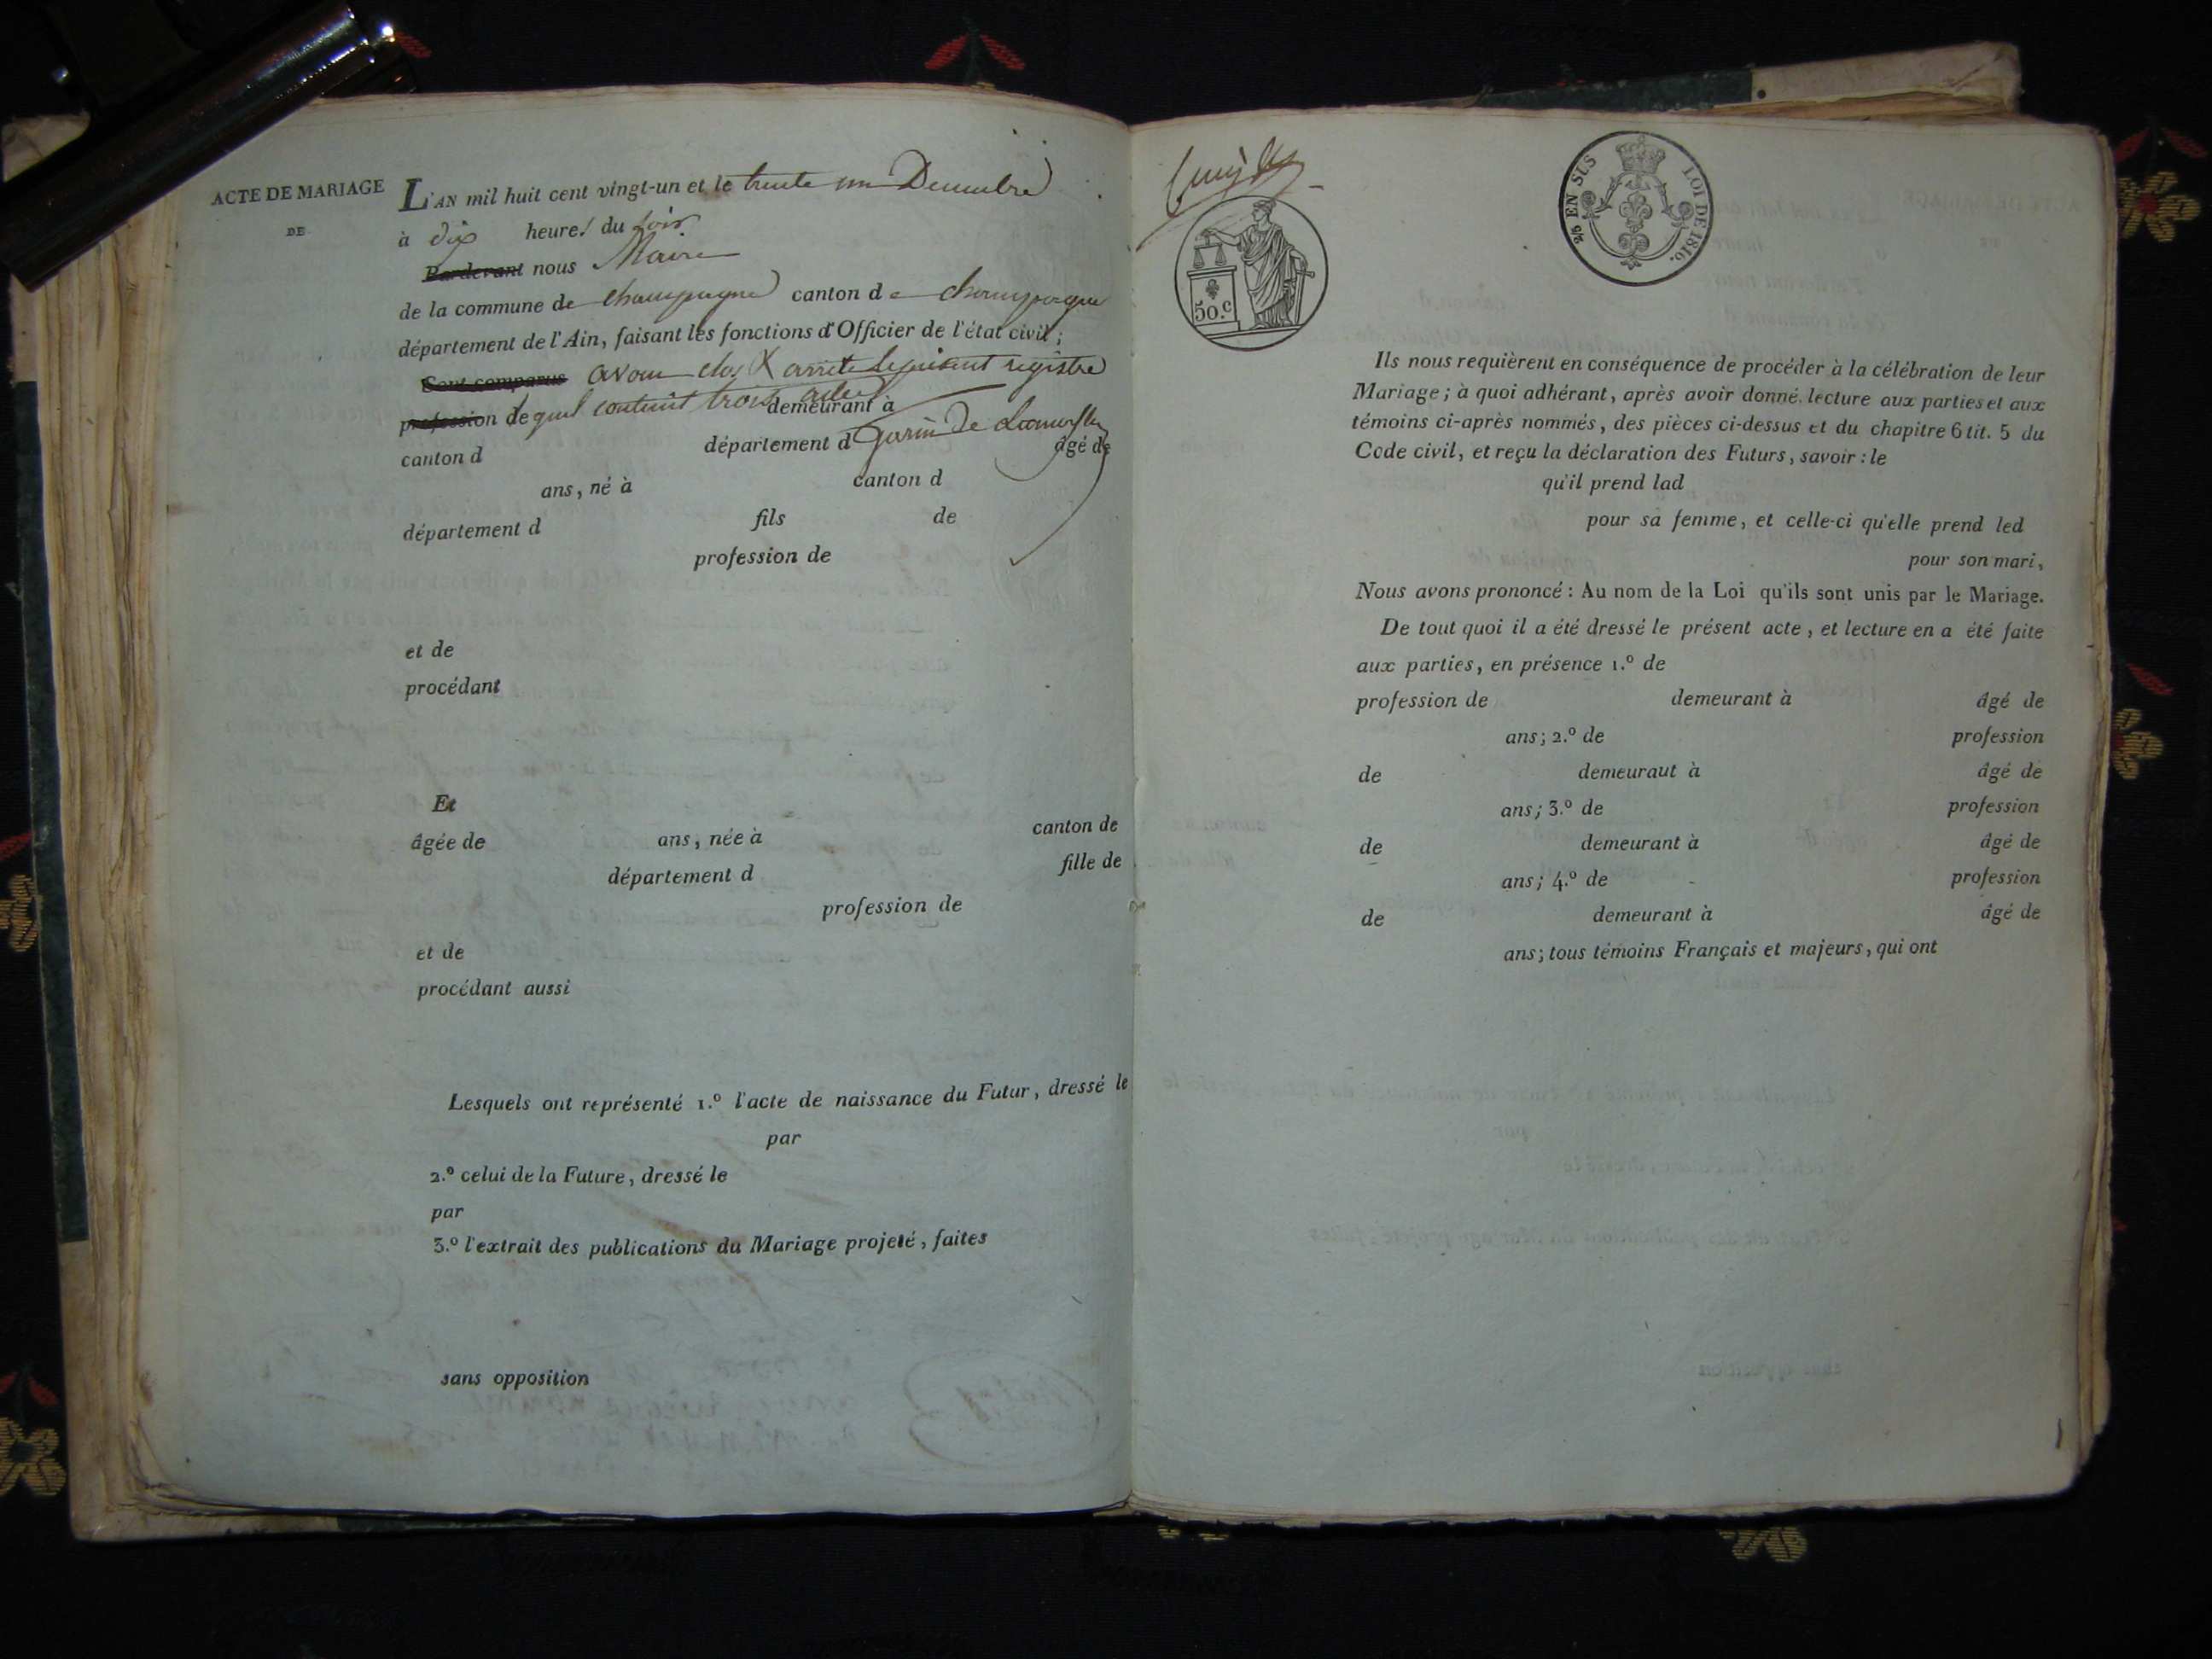 ACTE DE MARIAGE
DE
L'AN mil huit cent vingt-un et le trente un Decembre
à dix heures du soir
Pardevant nous Maire
de la commune de champagne canton de champagne
département de l'Ain, faisant les fonctions d'Officier de l'état civil;
Sont comparus avons clos & arrêté le présent registre
profession de quel contient trois actes demeurant à
canton d département d Garin De Lamorflan âgé de
ans, né à canton d
département d fils de
profession de
et de
procédant
Et
âgée de ans, née à canton de
département d fille de
profession de
et de
procédant aussi
Lesquels ont représenté 1.º l'acte de naissance du Futur, dressé le
par
2.º celui de la Future, dressé le
par
3.º l'extrait des publications du Mariage projeté, faites
sans opposition
50.c
2/5 EN SUS LOI DE 1816.
Ils nous requièrent en conséquence de procéder à la célébration de leur
Mariage; à quoi adhérant, après avoir donné lecture aux parties et aux
témoins ci-après nommés, des pièces ci-dessus et du chapitre 6 tit. 5 du
Code civil, et reçu la déclaration des Futurs, savoir: le
qu'il prend lad
pour sa femme, et celle-ci qu'elle prend led
pour son mari,
Nous avons prononcé: Au nom de la Loi qu'ils sont unis par le Mariage.
De tout quoi il a été dressé le présent acte, et lecture en a été faite
aux parties, en présence 1.º de
profession de demeurant à âgé de
ans; 2.º de profession
de demeuraut à âgé de
ans; 3.º de profession
de demeurant à âgé de
ans; 4.º de profession
de demeurant à âgé de
ans; tous témoins Français et majeurs, qui ont